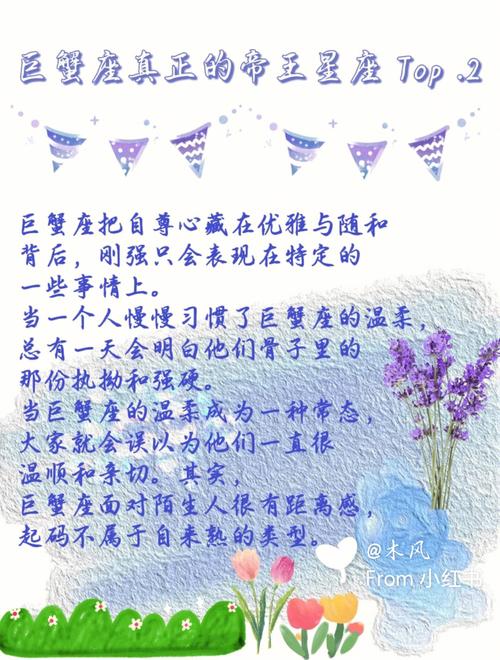 巨蟹座真正的帝王星座 Top .2
巨蟹座把自尊心藏在优雅与随和
背后，刚强只会表现在特定的
一些事情上。
当一个人慢慢习惯了巨蟹座的温柔，
总有一天会明白他们骨子里的
那份执拗和强硬。
当巨蟹座的温柔成为一种常态，
大家就会误以为他们一直很
温顺和亲切。其实，
巨蟹座面对陌生人很有距离感，
起码不属于自来熟的类型。
@木风
From 小红书